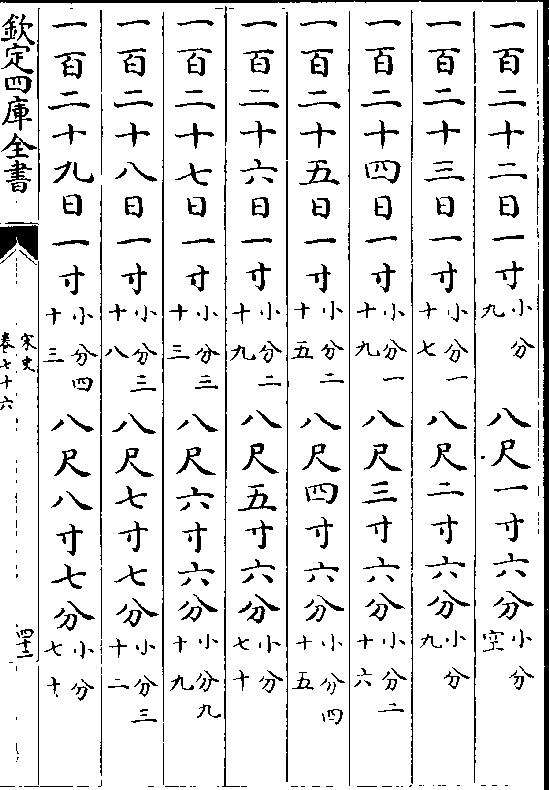 一百二十二日一寸小分九八尺一寸六分小分空
一百二十三日一寸小分一十七八尺二寸六分小分九
一百二十四日一寸小分一十九八尺三寸六分小分二十六
一百二十五日一寸小分二十五八尺四寸六分小分四十五
一百二十六日一寸小分二十九八尺五寸六分小分七十
一百二十七日一寸小分三十三八尺六寸六分小分九十九
一百二十八日一寸小分三十八八尺七寸七分小分三十二
一百二十九日一寸小分四十三八尺八寸七分小分七十
欽定四庫全書
宋史
卷七十六
四十二